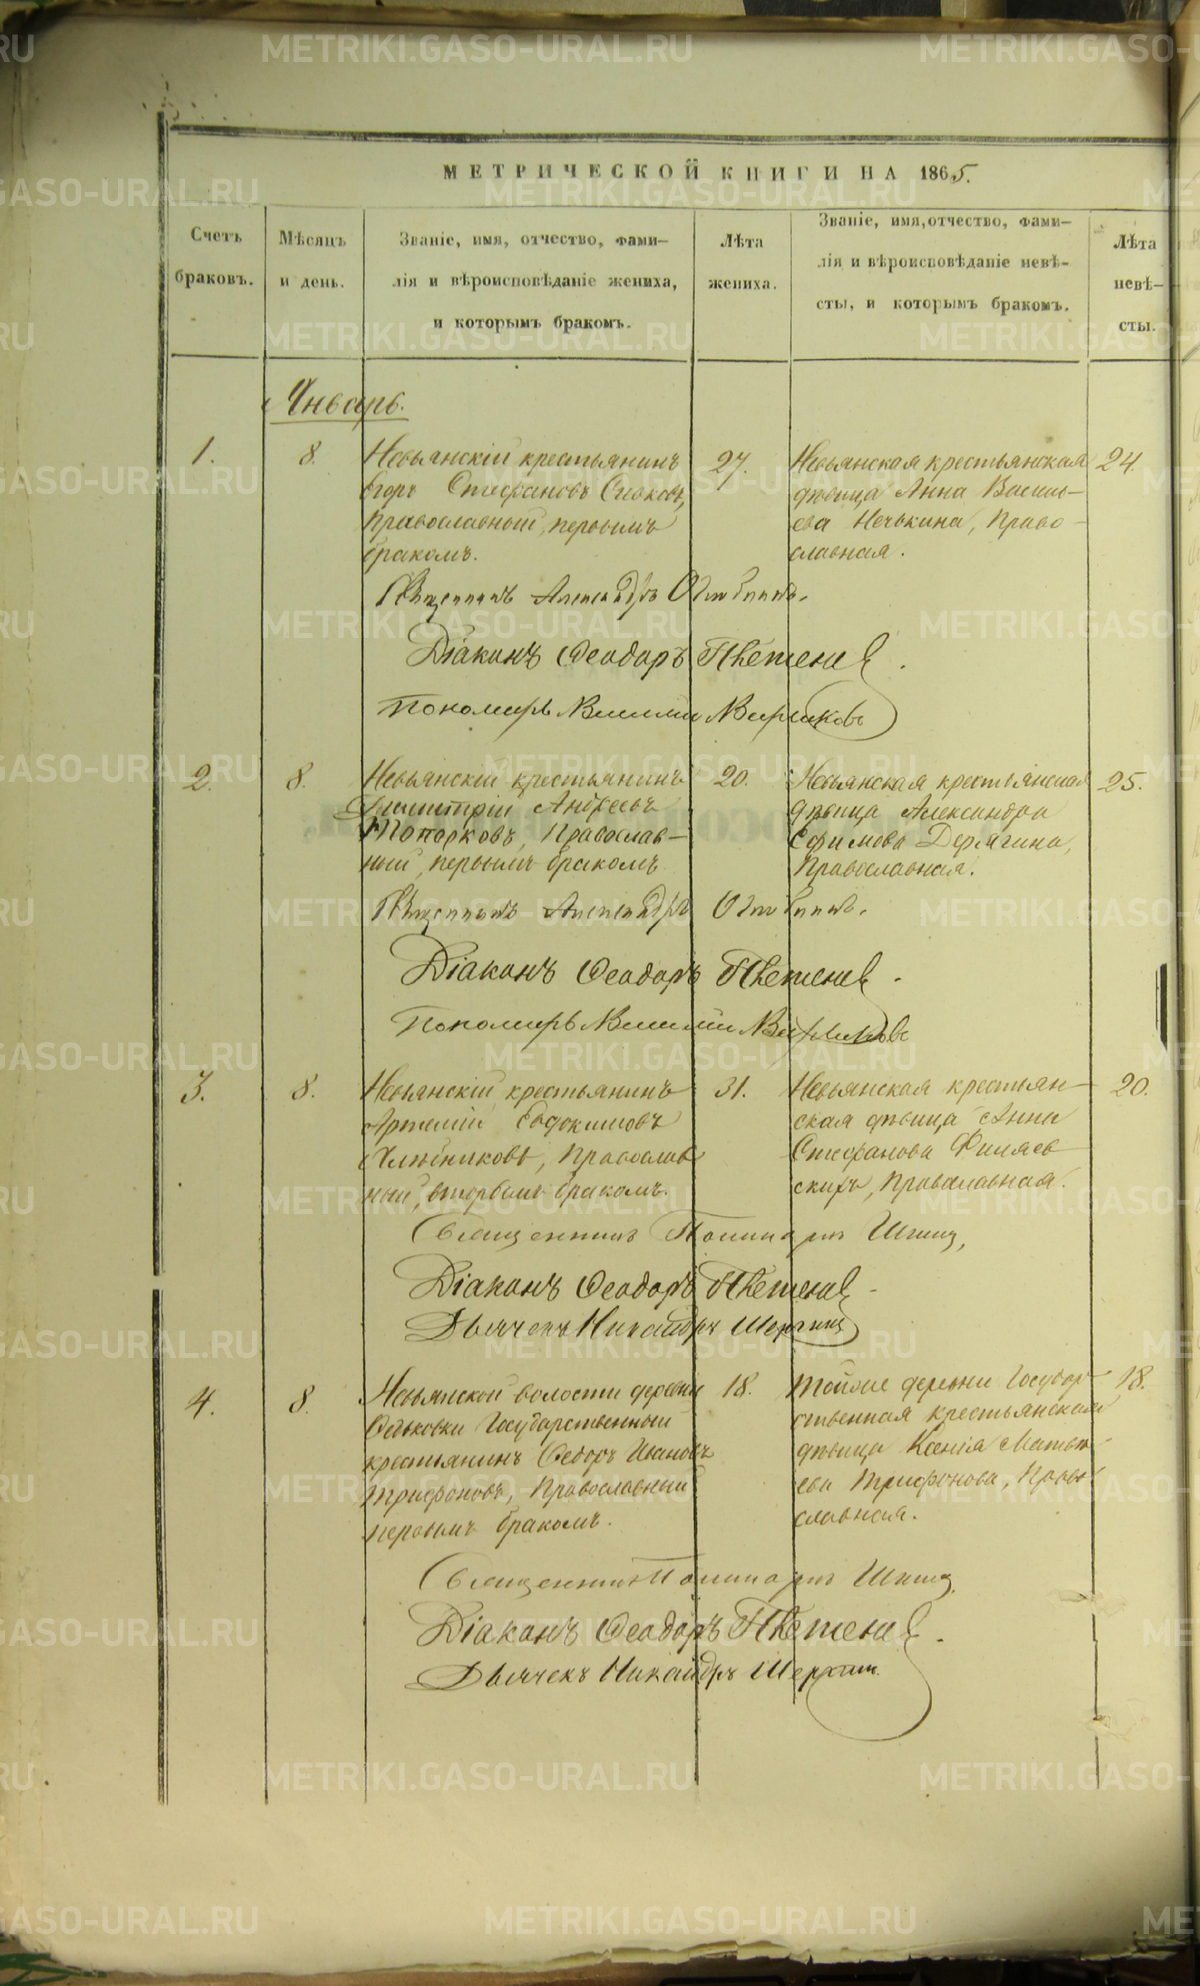 МЕТРИЧЕСКОЙ КНИГИ НА 1865.
Счетъ
браковъ.
Мѣсяцъ
и день.
Званіе, имя, отчество, фами-
лія и вѣроисповѣданіе жениха,
и которымъ бракомъ.
Лѣта
жениха.
Званіе, имя, отчество, фами-
лія и вѣроисповѣданіе невѣ-
сты, и которымъ бракомъ.
Лѣта
невѣ-
сты.
Январь.
1.
8.
Невьянскій крестьянинъ
Егоръ Стефановъ
Православный, первымъ
бракомъ.
27.
Невьянская крестьянская
дѣвица Анна Василь-
ева Нечькина, Право-
славная.
24.
Священникъ Александръ
Діаконъ Феодоръ
Пономарь
2.
8.
Невьянскій крестьянинъ
Димитрій Андреевъ
Топорковъ, Православ-
ный, первымъ бракомъ
20.
Невьянская крестьянская
дѣвица Александра
Ефимова Дерягина,
Православная.
25.
Священникъ Александръ
Діаконъ Феодоръ
Пономарь
3.
8.
Невьянскій крестьянинъ
Артемій Евдокимовъ
Хлѣбниковъ, Православ
ный, вторымъ бракомъ.
31.
Невьянская крестьян-
ская дѣвица Анна
Стефанова Филяев
скихъ, Православная.
20.
Священникъ
Діаконъ Феодоръ
Дьячекъ Никандръ
4.
8.
Невьянской волости деревни
Государственный
крестьянинъ Федоръ Ивановъ
Трифоновъ, Православный
первымъ бракомъ.
18.
Тойже деревни Государ-
ственная крестьянская
дѣвица Ксенія Матвѣ-
ева Трифонова, Право
славная.
18.
Священникъ
Діаконъ Феодоръ
Дьячекъ Никандръ
METRIKI.GASO-URAL.RU